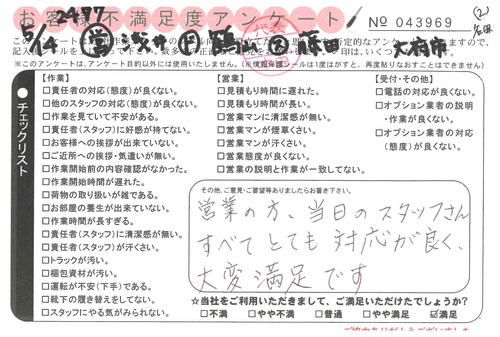 お客様不満足度アンケート
2497
No 043969
②
9/4
大府市
※このアンケートは、アンケート目的以外には使用いたしません。(※情報保護シールは1度はがすと、再度貼りなおすことはできません)
チェックリスト
【作業】
□責任者の対応(態度)が良くない。
□他のスタッフの対応(態度)が良くない。
□作業を見ていて不安がある。
□責任者(スタッフ)に好感が持てない。
□お客様への挨拶が出来ていない。
□ご近所への挨拶・気遣いが無い。
□作業開始前の内容確認がなかった。
□作業開始時間が遅れた。
□荷物の取り扱いが雑である。
□お部屋の養生が出来ていない。
□作業時間が長すぎる。
□責任者(スタッフ)に清潔感が無い。
□責任者(スタッフ)が汗くさい。
□トラックが汚い。
□梱包資材が汚い。
□運転が不安(下手)である。
□靴下の履き替えをしてない。
□スタッフにやる気がみられない。
【営業】
□見積もり時間に遅れた。
□見積もり時間が長い。
□営業マンに清潔感が無い。
□営業マンが煙草くさい。
□営業マンが汗くさい。
□営業態度が良くない。
□営業の説明と作業が一致してない。
【受付・その他】
□電話の対応が良くない。
□オプション業者の説明
・作業が良くない。
□オプション業者の対応
(態度)が良くない。
その他、ご意見・ご要望等ありましたらお書き下さい。
営業の方、当日のスタッフさん
すべてとても対応が良く、
大変満足です
☆当社をご利用いただきまして、ご満足いただけたでしょうか?
□不満 □やや不満 □普通 □やや満足 ☑満足
ご協力ありがとうございました